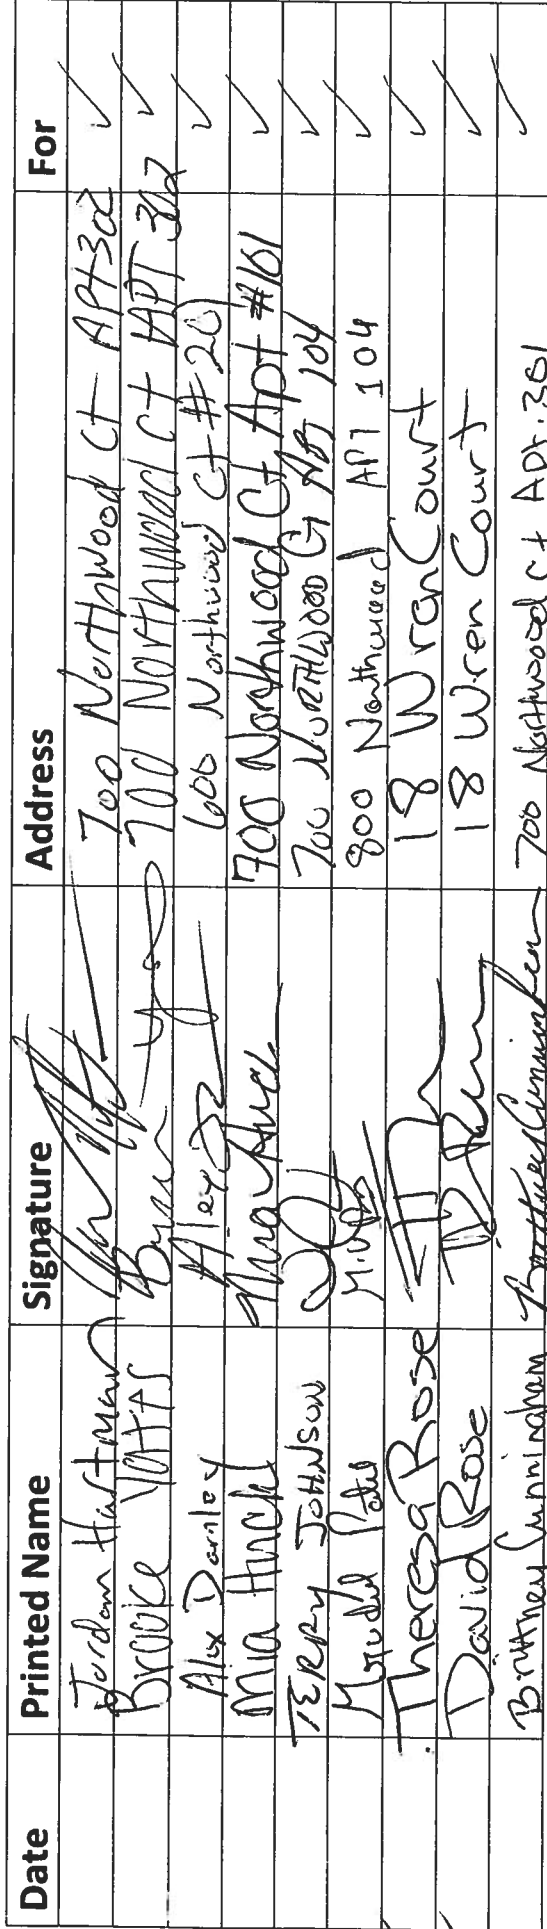 Date Printed Name Signature Address For
Jordan Hartman 700 Northwood Ct APt 302 ✓
Brooke Yates 700 Northwood ct APT 302 ✓
Alex Darnley Alex 600 Northwood Ct #20 ✓
Mia Huck Mia Huck 700 Northwood Ct Apt #101 ✓
TERRY JOHNSON 700 NORTHWOOD Ct 104 ✓
Patel 800 Northwood APT 104 ✓
Theresa Rose 18 Wren Court ✓
David Rose 18 Wren Court ✓
Brittney Cunningham Brittney Cunningham 700 Northwood Ct Apt. 301 ✓